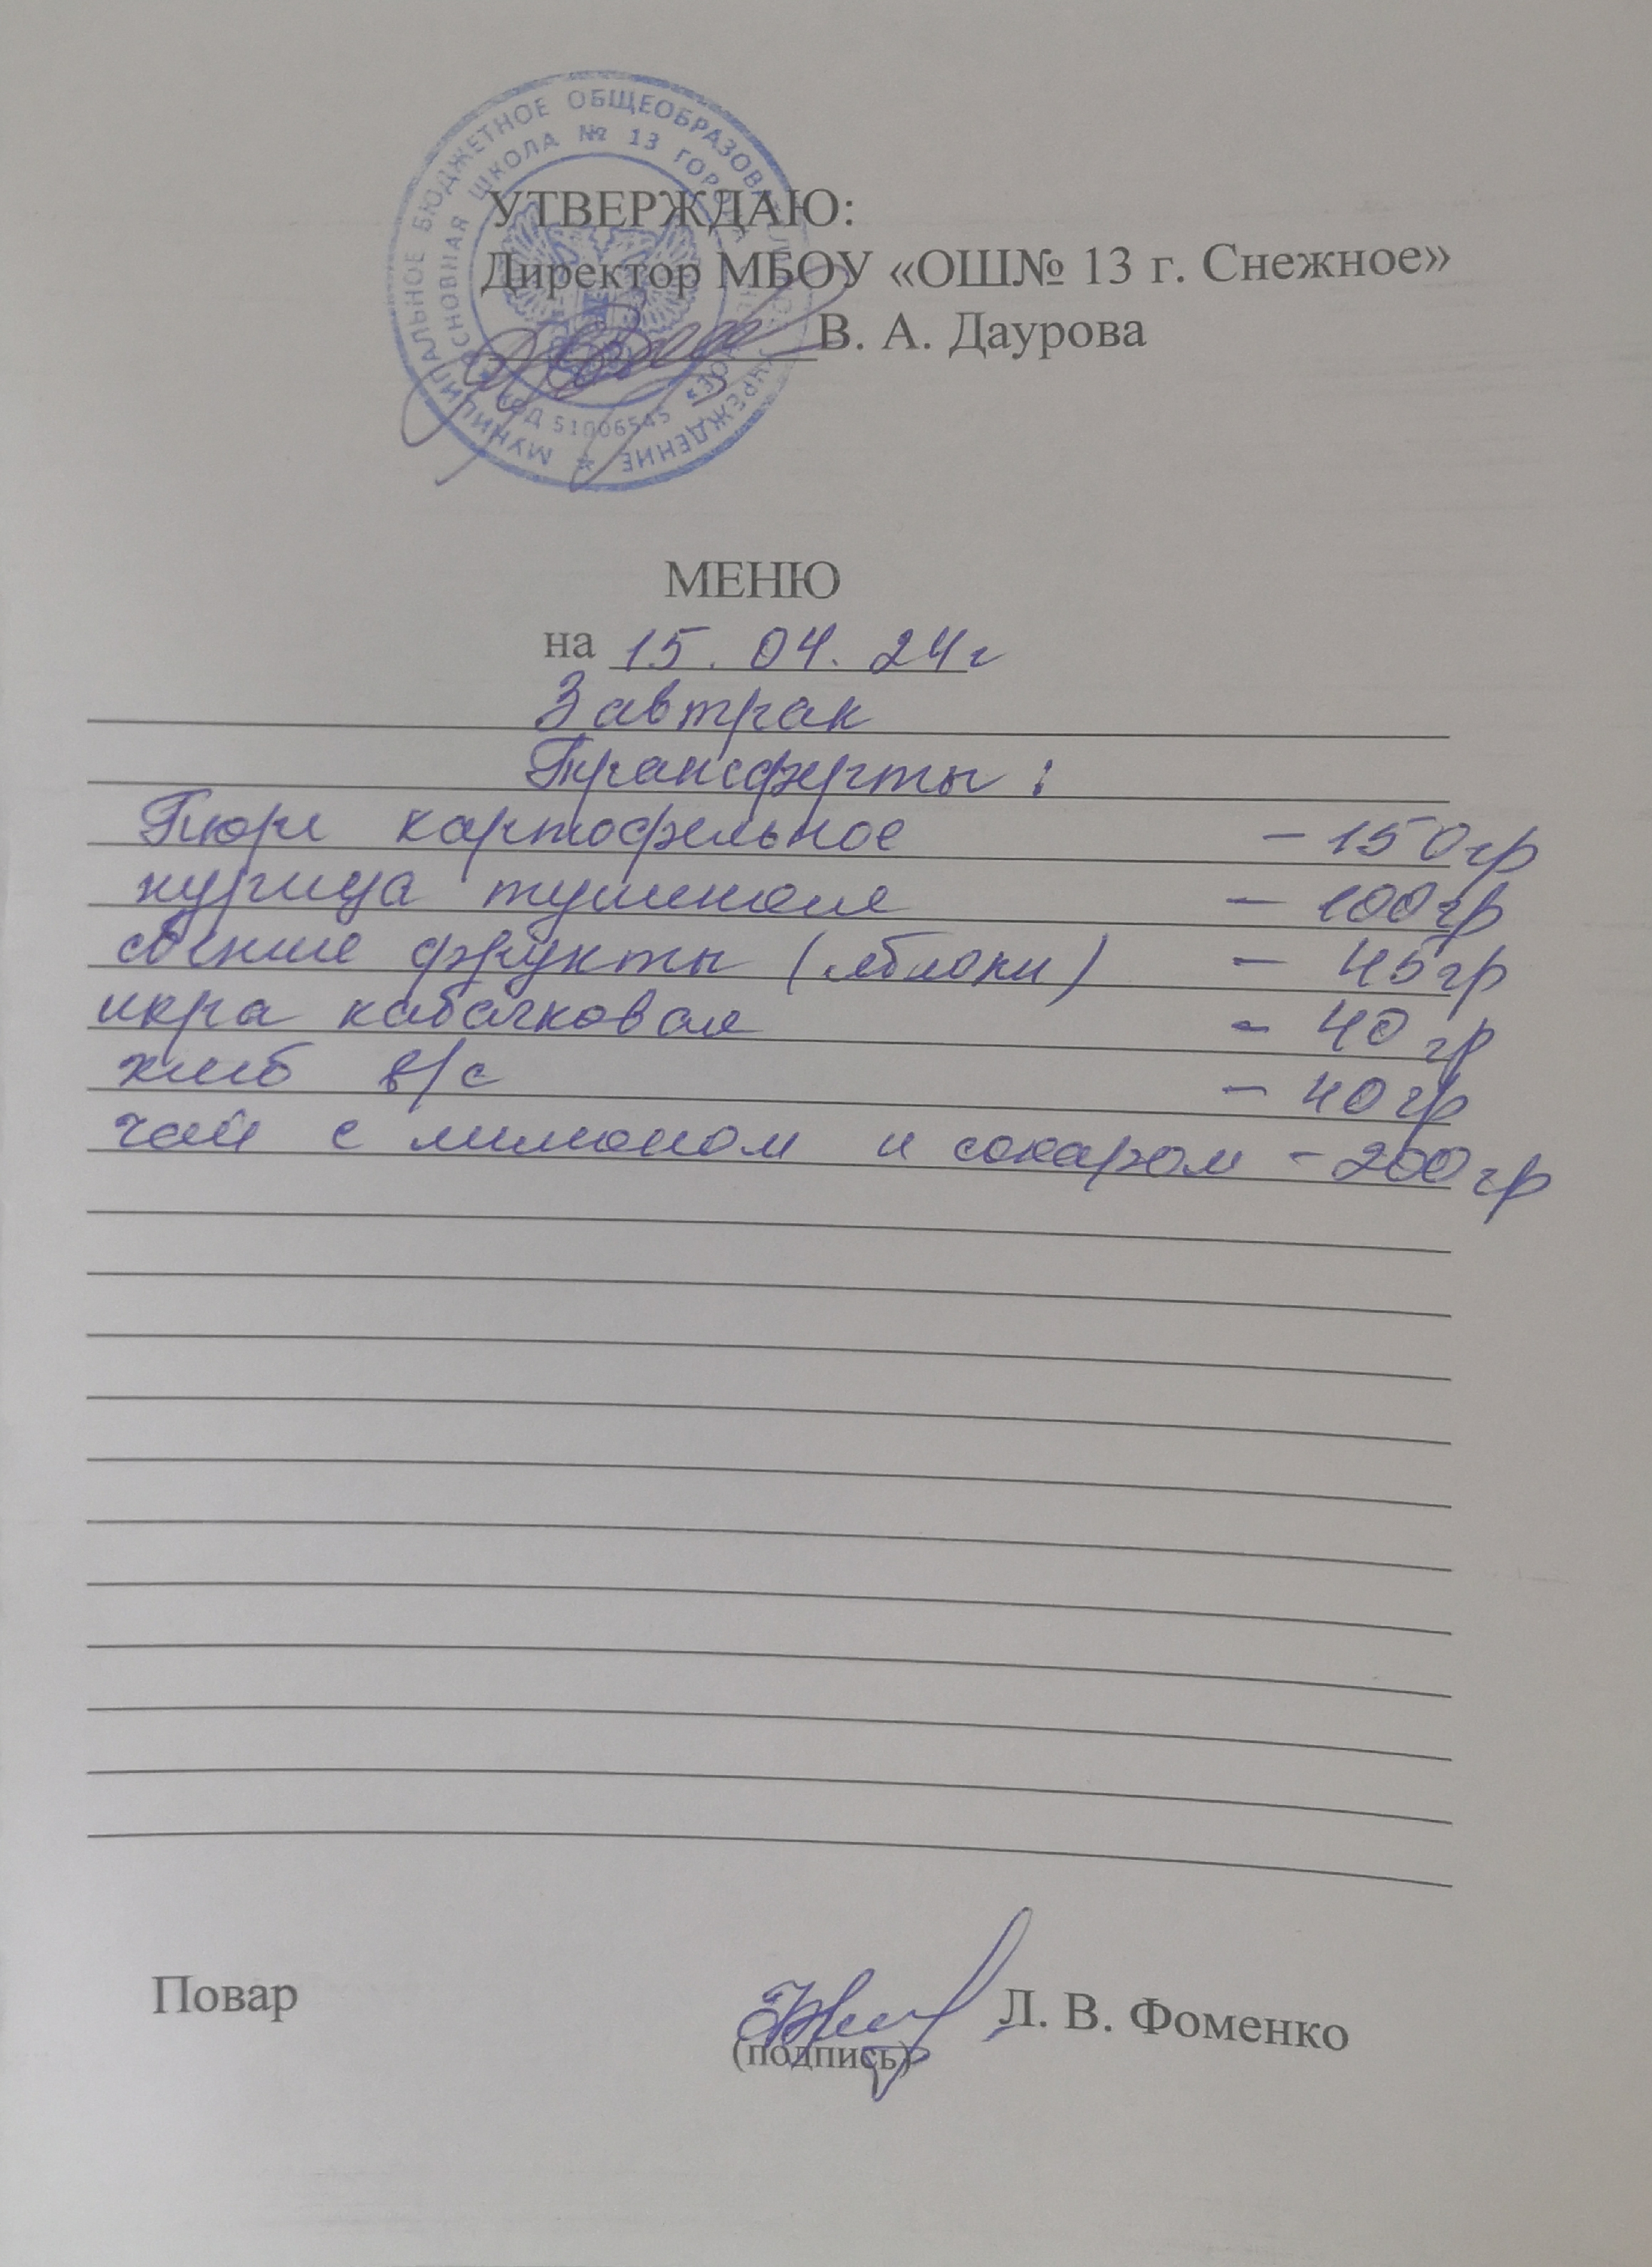 МУНИЦИПАЛЬНОЕ БЮДЖЕТНОЕ ОБЩЕОБРАЗОВАТЕЛЬНОЕ УЧРЕЖДЕНИЕ
ОСНОВНАЯ ШКОЛА № 13 ГОРОДА
КОД 51006545
УТВЕРЖДАЮ:
Директор МБОУ «ОШ№ 13 г. Снежное»
В. А. Даурова
МЕНЮ
на 15.04.24г
Завтрак
Трансферты:
Пюре картофельное - 150гр
курица тушеная - 100гр
свежие фрукты (яблоки) - 45гр
икра кабачковая - 40 гр
хлеб в/с - 40гр
чай с лимоном и сахаром - 200гр
Повар
Л. В. Фоменко
(подпись)